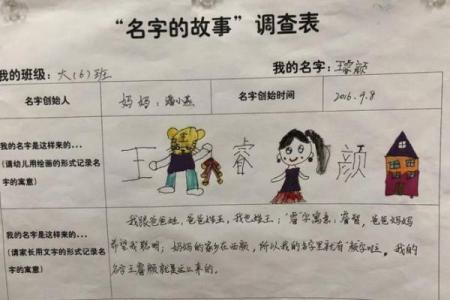 “名字的故事”调查表
我的班级：大（6）班
我的名字：王睿颜
名字创始人
妈妈：潘小燕
名字创始时间
2016.9.8
我的名字是这样来的...
（请幼儿用绘画的形式记录名
字的寓意）
王 睿 颜
我的名字是这样来的...
（请家长用文字的形式记录名
字的寓意）
我跟爸爸姓，爸爸姓王，我也姓王；“睿”字寓意：睿智，爸爸妈妈
希望我聪明；妈妈的家乡在西颜，所以我的名字里就有“颜”字啦。我的
名字王睿颜就是这么来的。